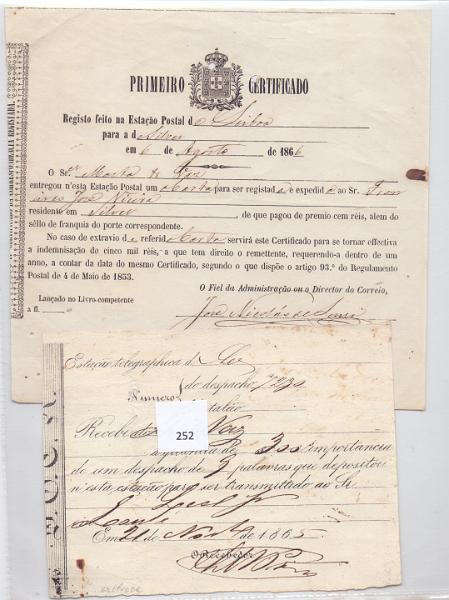 PRIMEIRO CERTIFICADO
Registo feito na Estação Postal de Lisboa
para a de Silves
em 6 de Agosto de 1866
O Sr. Motta &
entregou n'esta Estação Postal uma Carta para ser registada e expedida ao Sr.
José Vieira
residente em Silves, de que pagou de premio cem réis, alem do
sêllo de franquia do porte correspondente.
No caso de extravio da referida Carta servirá este Certificado para se tornar effectiva
a indemnisação de cinco mil réis, a que tem direito o remettente, requerendo-a dentro de um
anno, a contar da data do mesmo Certificado, segundo o que dispõe o artigo 93.º do Regulamento
Postal de 4 de Maio de 1853.
O Fiel da Administração ou o Director do Correio,
Lançado no Livro competente
a fl.
José
Estação telegraphica de
Numero do despacho
do talão
252
Recebi do Sr. Vaz
a quantia de 300 importancia
de um despacho de palavras que depositou
n'esta estação para ser transmittido ao Sr.
Em 21 de de 1865
O Recebedor